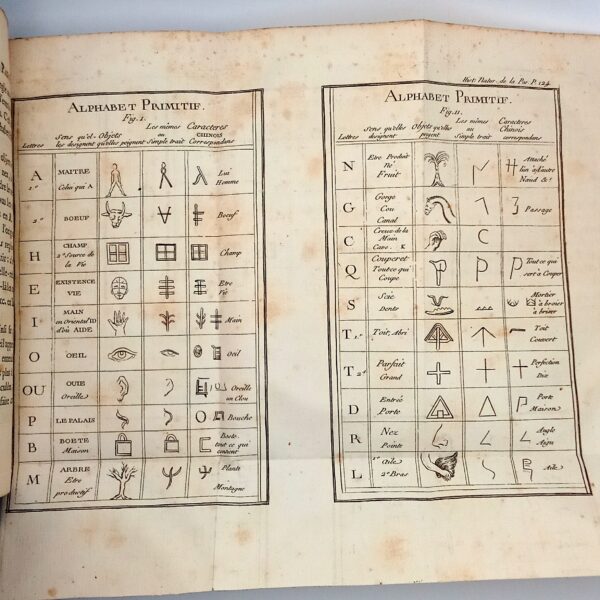 Hist. Natur. de la Par. P. 124.
ALPHABET PRIMITIF.
Fig. I.
Lettres
Sens qu'el-les désignent
Objets qu'elles peignent
Les mêmes au Simple trait
Caracteres CHINOIS Correspondans
A 1º MAITRE Celui qui A Lui Homme
2º BOEUF Boeuf
H CHAMP 2º Source de la Vie Champ
E EXISTENCE VIE Etre Vie
I MAIN en Oriental ID d'où AIDE Main
O OEIL Oeil
OU OUIE Oreille Oreille un Clou
P LE PALAIS Bouche
B BOETE Maison Boete tout ce qui contient
M ARBRE Etre productif Plante Montagne
ALPHABET PRIMITIF.
Fig. II.
Lettres
Sens qu'elles désignent
Objets qu'elles peignent
Les mêmes au Simple trait
Caracteres Chinois correspondans
N Etre Produit Né Fruit Attaché l'un à l'autre Nœud &c.
G Gorge Cou Canal Passage
C Creux de la Main Cave. K
Q Couperet Tout ce qui Coupe P Tout ce qui sert à Couper
S Scie Dents Mortier à broier
T 1º Toit, Abri Toit Couvert
T 2º Parfait Grand Perfection Dix
D Entrée Porte Porte Maison
R Nez Pointe Angle Aigu
L 1º Aile 2º Bras Aile